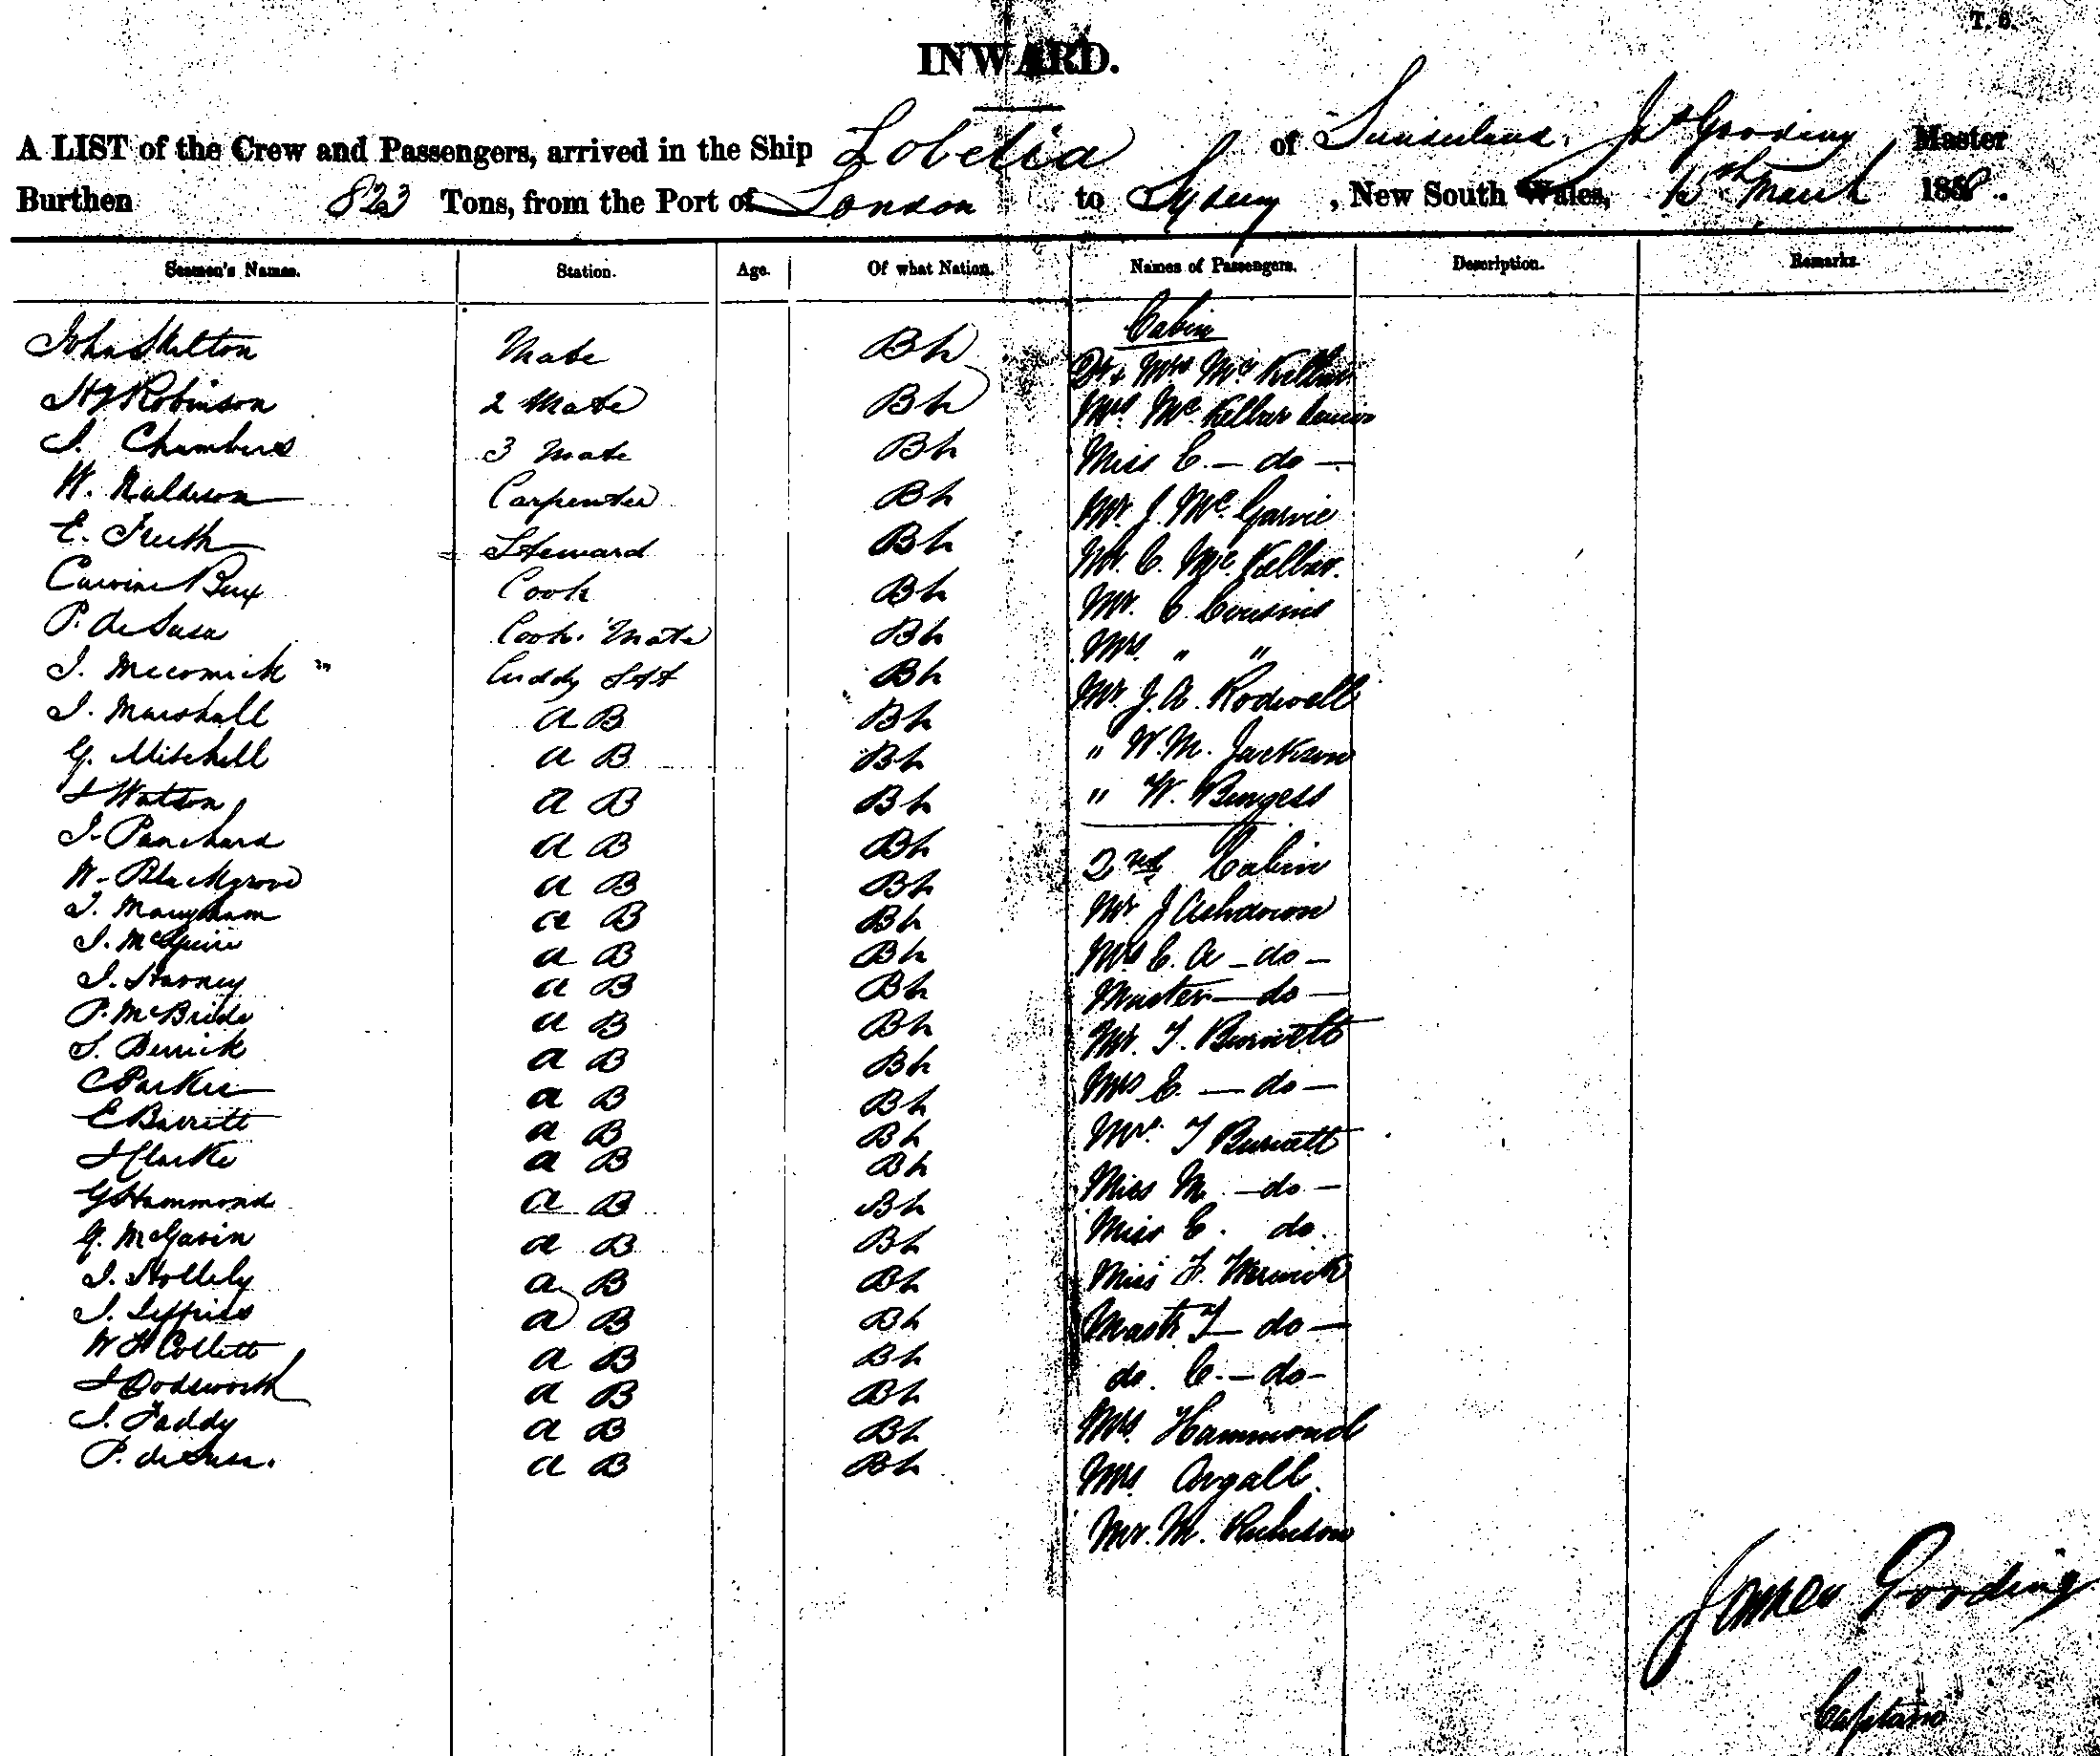 T. 6.
INWARD.
A LIST of the Crew and Passengers, arrived in the Ship Lobelia of Sunderland, Jas Gooding Master
Burthen 823 Tons, from the Port of London to Sydney, New South Wales, 15th March 1858.
Seamen's Names. Station. Age. Of what Nation. Names of Passengers. Description. Remarks.
Cabin
John Skelton Mate Bh Dr & Mrs McKellar
Hy Robinson 2 Mate Bh Mrs McKellar Senior
J. Chambers 3 Mate Bh Miss C. - do -
W. Carpenter Bh Mr. J. McGarvie
E. Steward Bh Mr. C. McKellar.
Bux Cook Bh Mr. C Cousins
P. de Susa Cook. Mate Bh Mrs. " "
J. Mccomick Cuddy Sstt Bh Mr. J. A. Rodwell
J. Marshall A B Bh " W. M. Jackson
G. Mitchell A B Bh " W. Burgess
J Watson A B Bh
J. Panchard A B Bh 2nd Cabin
W. Blackgrove A B Bh Mr J Ashdown
J. Maugham A B Bh Mrs E. A - do -
J. McGuire A B Bh Master - do -
J. Harney A B Bh Mr. T. Burnett
P. McBride A B Bh Mrs E. - do -
S. Derrick A B Bh Mr. T Burnett
C Parker A B Bh Miss M. - do -
E Barrett A B Bh Miss E. do.
J Clarke A B Bh Miss F. Warwick
G Hammond A B Bh Mastr T - do -
G. McGavin A B Bh do. C. - do -
J. Hollely A B Bh Mrs. Hammond
J. Jeffries A B Bh Mrs Argall.
W H Collett A B Bh Mr. M.
J Dodsworth A B Bh
J. Faddy A B Bh
P. de Susa. A B Bh
James Gooding
Captain